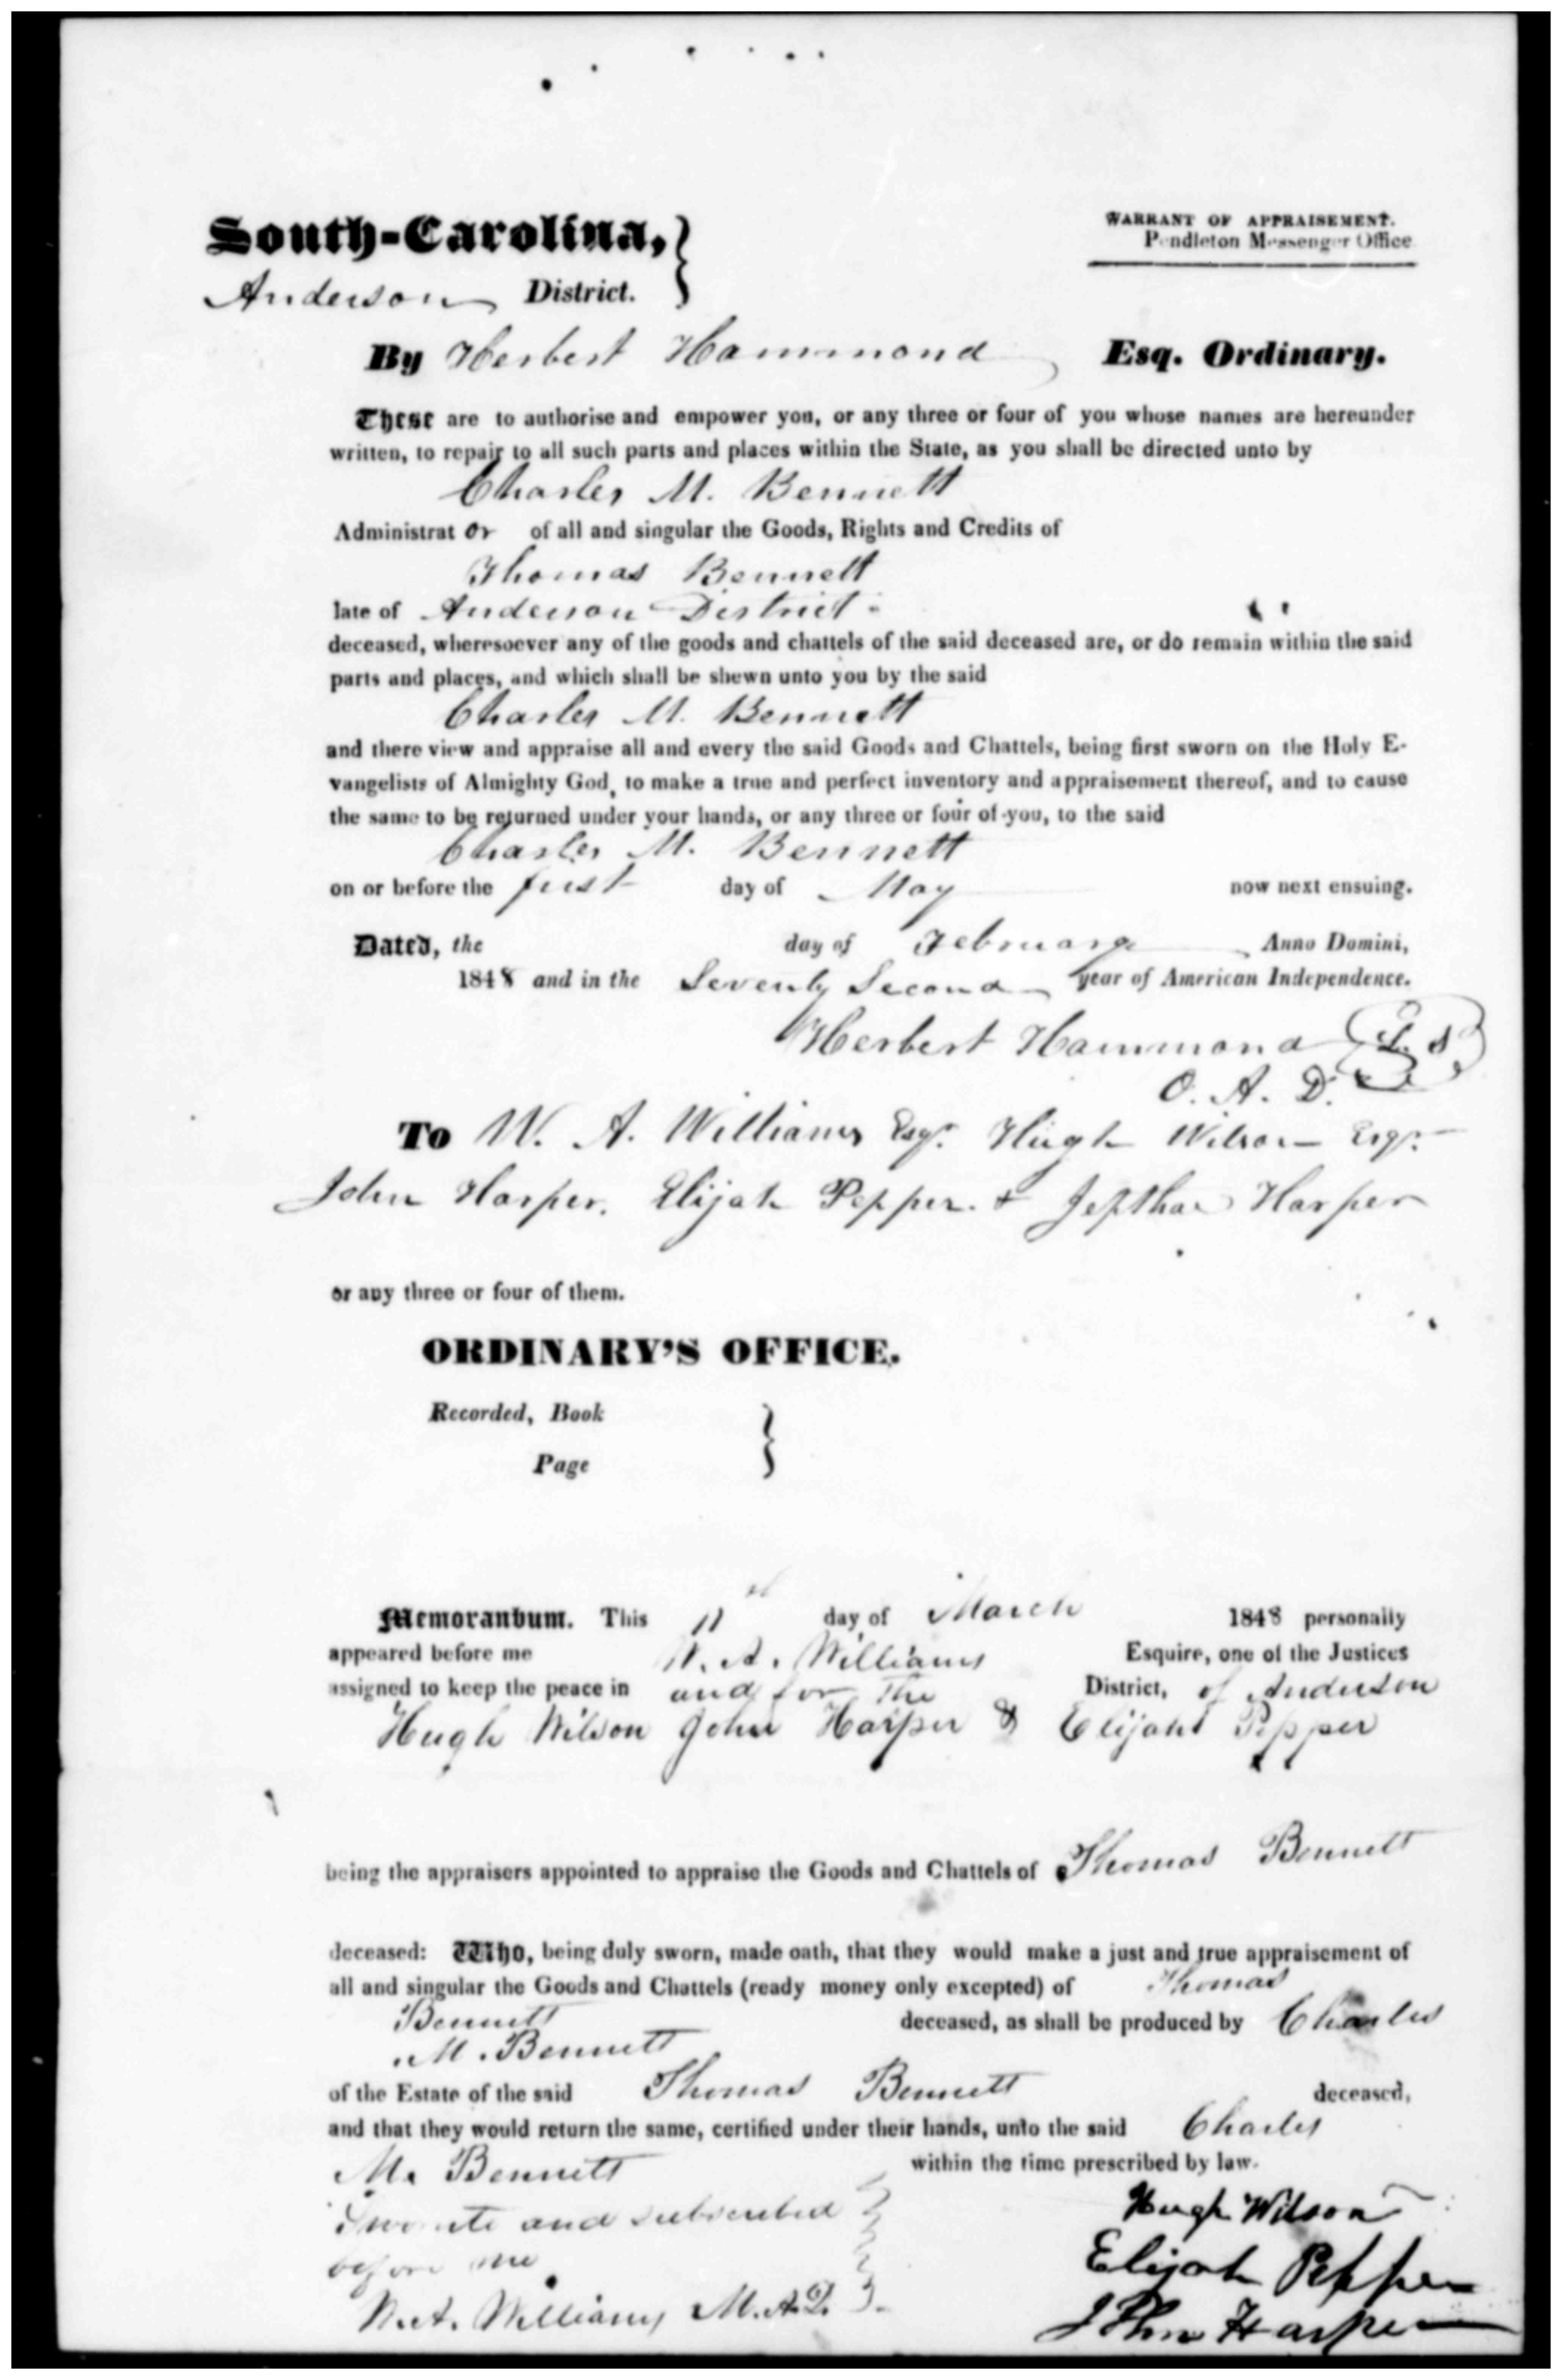 South-Carolina, }
WARRANT OF APPRAISEMENT.
Pendleton Messenger Office
Anderson District.
By Herbert Hammond Esq. Ordinary.
These are to authorise and empower you, or any three or four of you whose names are hereunder
written, to repair to all such parts and places within the State, as you shall be directed unto by
Charles M. Bennett
Administrat or of all and singular the Goods, Rights and Credits of
Thomas Bennett
late of Anderson District
deceased, wheresoever any of the goods and chattels of the said deceased are, or do remain within the said
parts and places, and which shall be shewn unto you by the said
Charles M. Bennett
and there view and appraise all and every the said Goods and Chattels, being first sworn on the Holy E-
vangelists of Almighty God, to make a true and perfect inventory and appraisement thereof, and to cause
the same to be returned under your hands, or any three or four of you, to the said
Charles M. Bennett
on or before the first day of May now next ensuing.
Dated, the day of February Anno Domini,
1848 and in the Seventy Second year of American Independence.
Herbert Hammond L. S
O. A. D.
To W. A. Williams Esqr. Hugh Wilson Esqr.
John Harper. Elijah Pepper. & Jepthae Harper
or any three or four of them.
ORDINARY'S OFFICE.
Recorded, Book }
Page
Memorandum. This 11th day of March 1848 personally
appeared before me W. A. Williams Esquire, one of the Justices
assigned to keep the peace in and for the District, of Anderson
Hugh Wilson John Harper & Elijah Pepper
being the appraisers appointed to appraise the Goods and Chattels of Thomas Bennett
deceased: Who, being duly sworn, made oath, that they would make a just and true appraisement of
all and singular the Goods and Chattels (ready money only excepted) of Thomas
Bennett deceased, as shall be produced by Charles
M. Bennett
of the Estate of the said Thomas Bennett deceased,
and that they would return the same, certified under their hands, unto the said Charles
M. Bennett within the time prescribed by law.
and subscribed
before me
W. A. Williams M.A.D.
Hugh Wilson
Elijah Pepper
John Harper